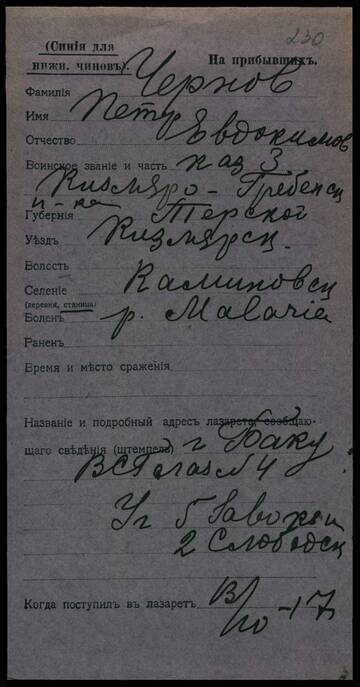 230
(Синія для
нижн. чиновъ).
На прибывшихъ.
Фамилія Чернов
Имя Петр
Отчество Евдокимов
Воинское званіе и часть каз 3
Кизляро-Гребенск
п-ка
Губернія Терской
Уѣздъ Кизлярск.
Волость
Селеніе Калиновск
(деревня, станица)
Боленъ р. Malaria
Раненъ
Время и мѣсто сраженія
Названіе и подробный адресъ лазарета, сообщаю-
щаго свѣдѣнія (штемпель) г Баку
ВСГ лаз N 4
Уг 5
2 Слободск
Когда поступил въ лазаретъ 8/10-17